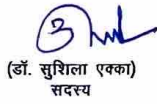 (डॉ. सुशिला एक्का)
सदस्य